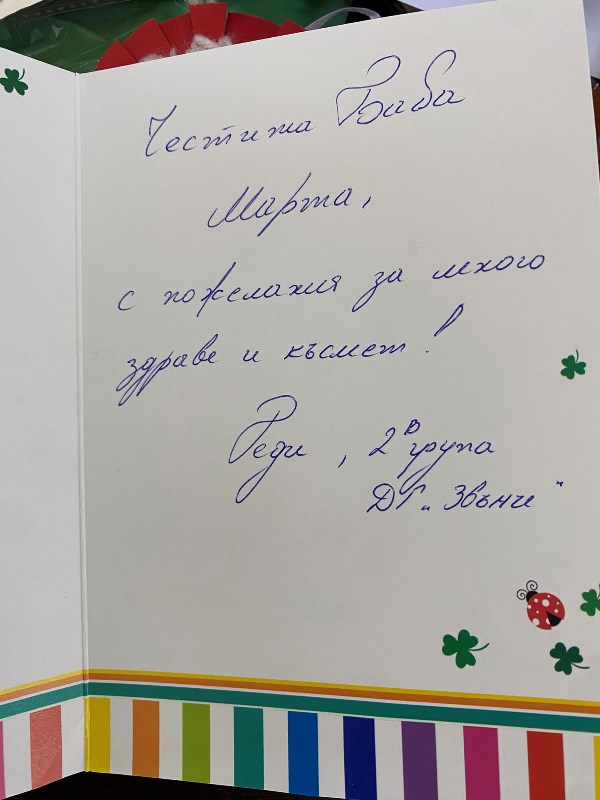 Честита Баба
Марта,
с пожелания за много
здраве и късмет!
Реди, 2В група
ДГ „Звънче"